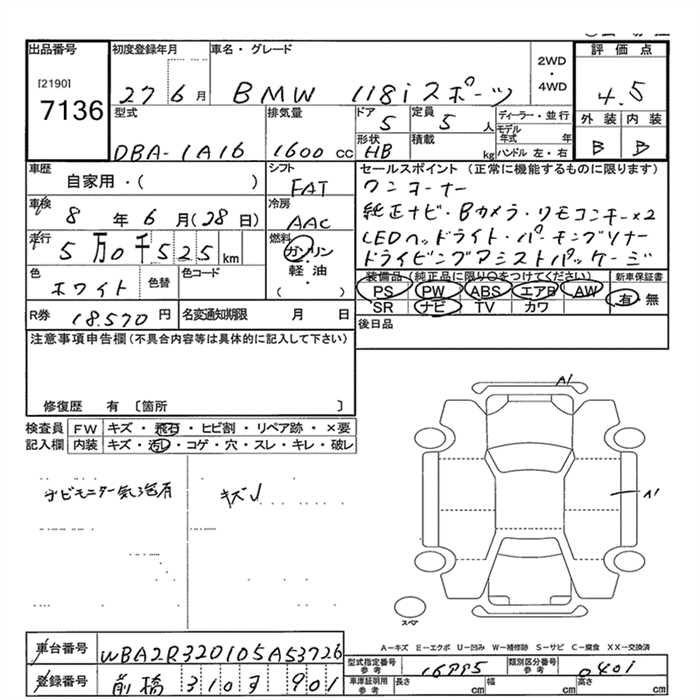 出品番号 初度登録年月 車名・グレード
[2190] 7136 27 6月 BMW 118i スポーツ 2WD・4WD
評価点 4.5
外装 内装
B B
型式 排気量 ドア 定員 ディーラー・並行
DBA-1A16 1600cc 5 5人 モデル年式 年
形状 積載 ハンドル 左・右
HB kg
車歴 シフト セールスポイント(正常に機能するものに限ります)
自家用・( ) FAT ワンオーナー
車検 冷房 純正ナビ・Bカメラ・リモコンキー×2
8年6月(28日) AAC LEDヘッドライト・パーキングソナー
走行 燃料 ドライビングアシストパッケージ
5万0千525km ガソリン
軽・油
( )
色 色替 色コード 装備品(純正品に限り○をつけてください) 新車保証書
ホワイト PS PW ABS エアB AW 有・無
SR ナビ TV カワ
R券 18,570円 名変通知期限 月 日 後日品
注意事項申告欄(不具合内容等は具体的に記入して下さい)
修復歴 有 〔箇所 〕
検査員 FW キズ・飛石・ヒビ割・リペア跡・×要
記入欄 内装 キズ・汚レ・コゲ・穴・スレ・キレ・破レ
A1
ナビモニター気泡有 キズ
A1
スペア
A-キズ E-エクボ U-凹み W-補修跡 S-サビ C-腐食 XX-交換済
車台番号 WBA2R320105A53726
型式指定番号 参考 類別区分番号 参考 0401
登録番号 前橋 901
車庫証明用 参考 長さ cm 幅 cm 高さ cm